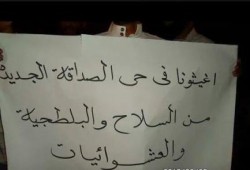 اغيثونا فى حى الصداقة الجديدة
من السلاح والبلطجية
والعشوائيات